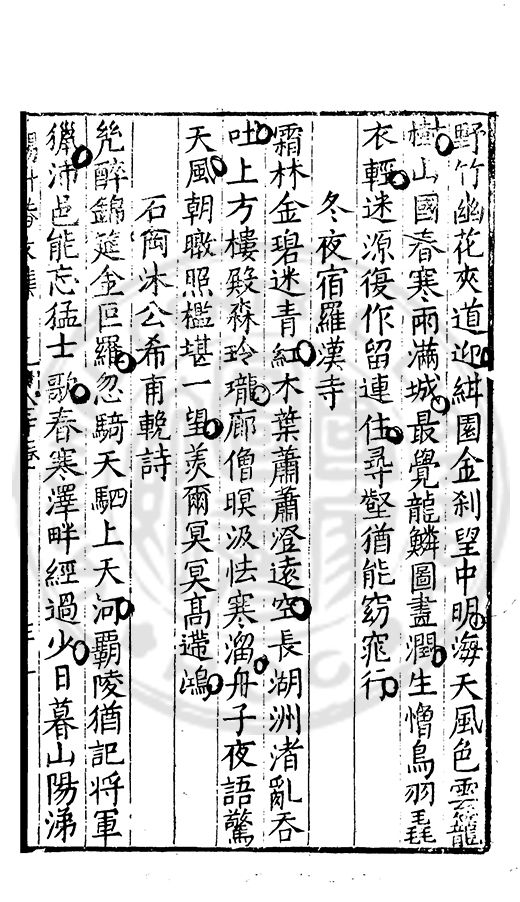 野竹幽花夾道迎紺園金刹望中明海天風色雲籠
樹山國春寒雨滿城最覺龍鱗圖畫潤生憎鳥羽毳
衣輕迷源復作留連住尋壑猶能窈窕行
冬夜宿羅漢寺
霜林金碧迷青紅木葉蕭蕭澄遠空長湖洲渚亂吞
吐上方樓殿森玲瓏廊僧暝汲怯寒溜舟子夜語驚
天風朝暾照檻堪一望羨爾冥冥高遰鴻
石岡沐公希甫輓詩
凭醉錦筵金叵羅忽騎天駟上天河霸陵猶記將軍
獵沛邑能忘猛士歌春寒澤畔經過少日暮山陽涕